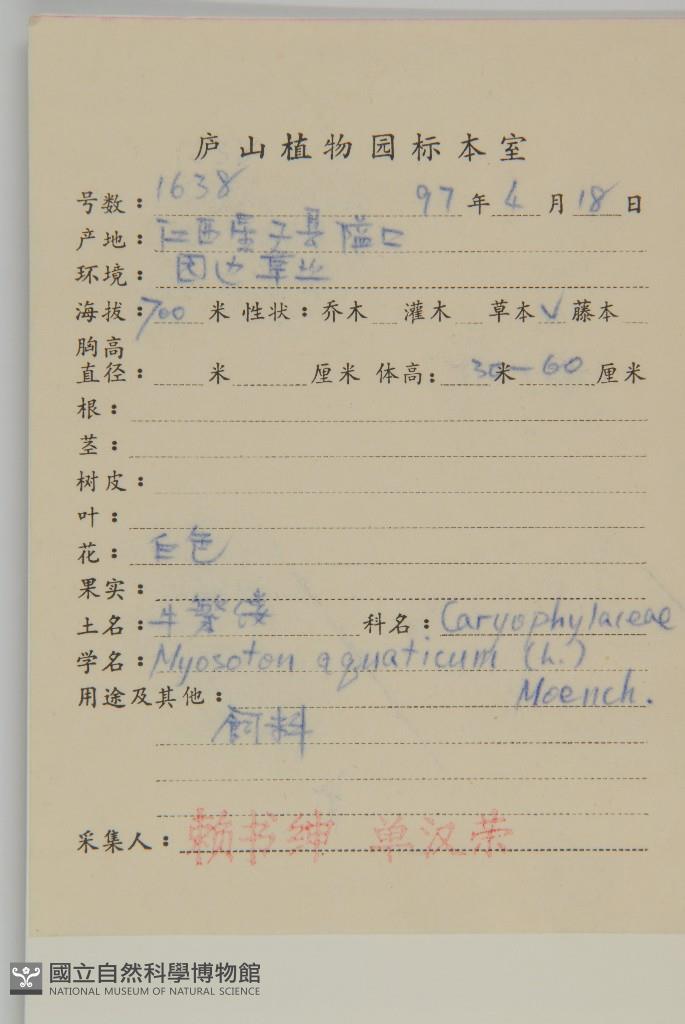 庐山植物园标本室
号数：1638 97年4月18日
产地：江西星子县隘口
环境：田边草丛
海拔：700米 性状：乔木 灌木 草本√ 藤本
胸高
直径： 米 厘米 体高： 30米—60厘米
根：
茎：
树皮：
叶：
花：白色
果实：
土名：牛繁缕 科名：Caryophylaceae
学名：Myosoton aquaticum (L.)
用途及其他： Moench.
飼料
采集人：赖书绅 单汉荣
國立自然科學博物館
NATIONAL MUSEUM OF NATURAL SCIENCE